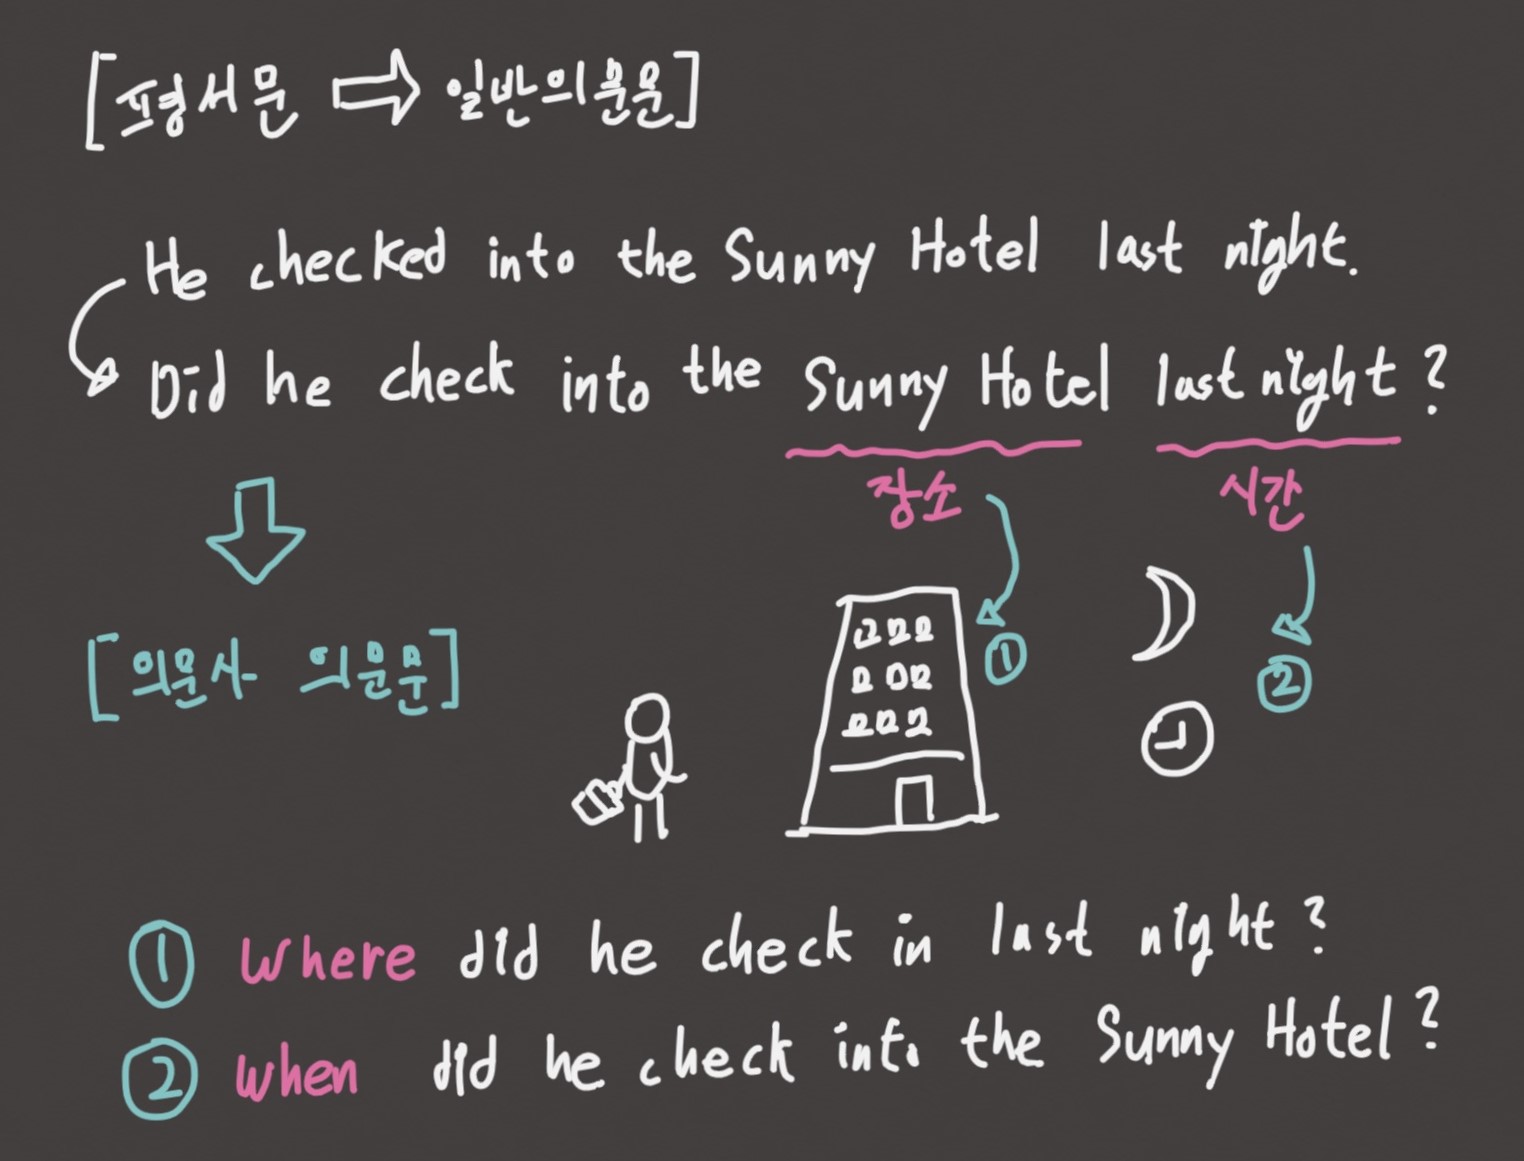 [평서문 ⇨ 일반의문문]
He checked into the Sunny Hotel last night.
Did he check into the Sunny Hotel last night?
장소 시간
① ②
[의문사 의문문]
① Where did he check in last night?
② When did he check into the Sunny Hotel?